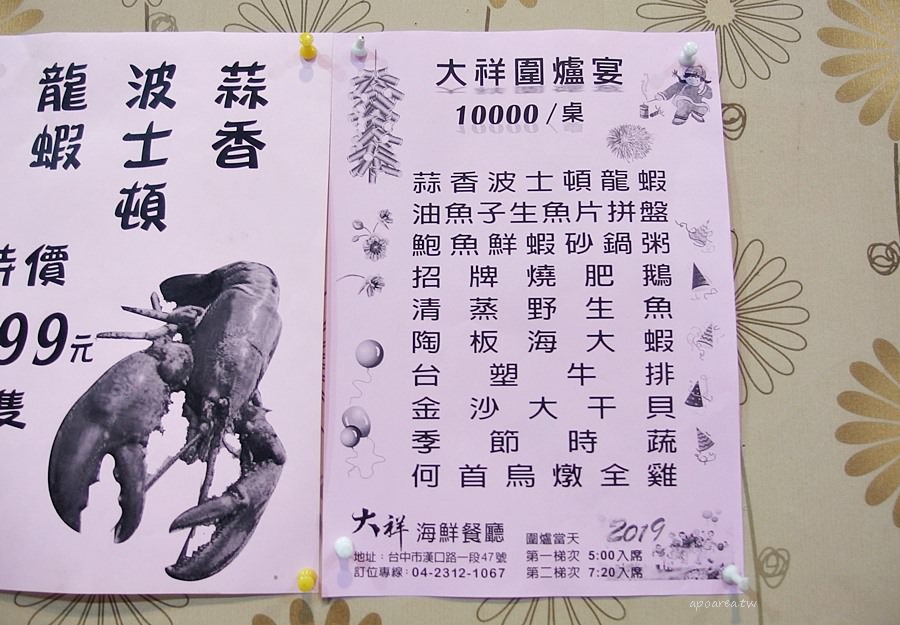 蒜香
波士頓
龍蝦
特價
99元
隻
大祥圍爐宴
10000/桌
蒜香波士頓龍蝦
油魚子生魚片拼盤
鮑魚鮮蝦砂鍋粥
招牌燒肥鵝
清蒸野生魚
陶板海大蝦
台塑牛排
金沙大干貝
季節時蔬
何首烏燉全雞
大祥海鮮餐廳
地址：台中市漢口路一段47號
訂位專線：04-2312-1067
圍爐當天
第一梯次 5:00入席
第二梯次 7:20入席
2019
apoarea.tw